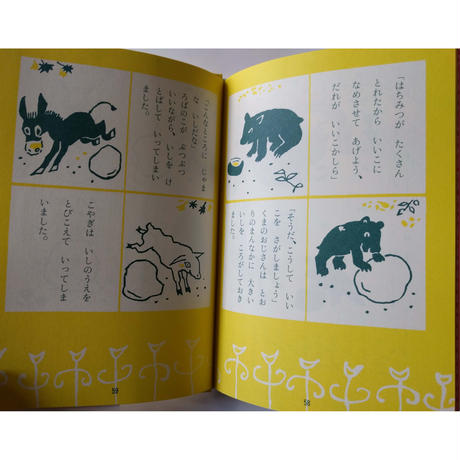 「はちみつが たくさん
とれたから いいこに
なめさせて あげよう、
だれが いいこかしら」
「そうだ、こうして いい
こを さがしましょう」
くまのおじさんは とお
りのまんなかに 大きい
いしを ころがしておき
ました。
58
「こんなところに じゃま
な いしだな」
ろばのこが ぶつぶつ
いいながら、いしを け
とばして いってしまい
ました。
こやぎは いしのうえを
とびこえて いってしま
いました。
59